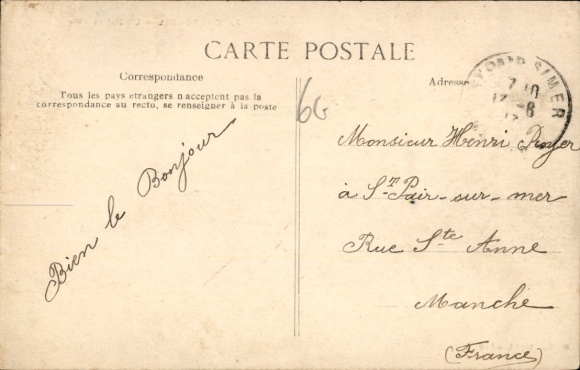 CARTE POSTALE
Correspondance
Tous les pays étrangers n'acceptent pas la
correspondance au recto, se renseigner à la poste
Adresse
6G
Bien le Bonjour
Monsieur Henri Royer
à St Pair-sur-mer
Rue Ste Anne
Manche
(France)